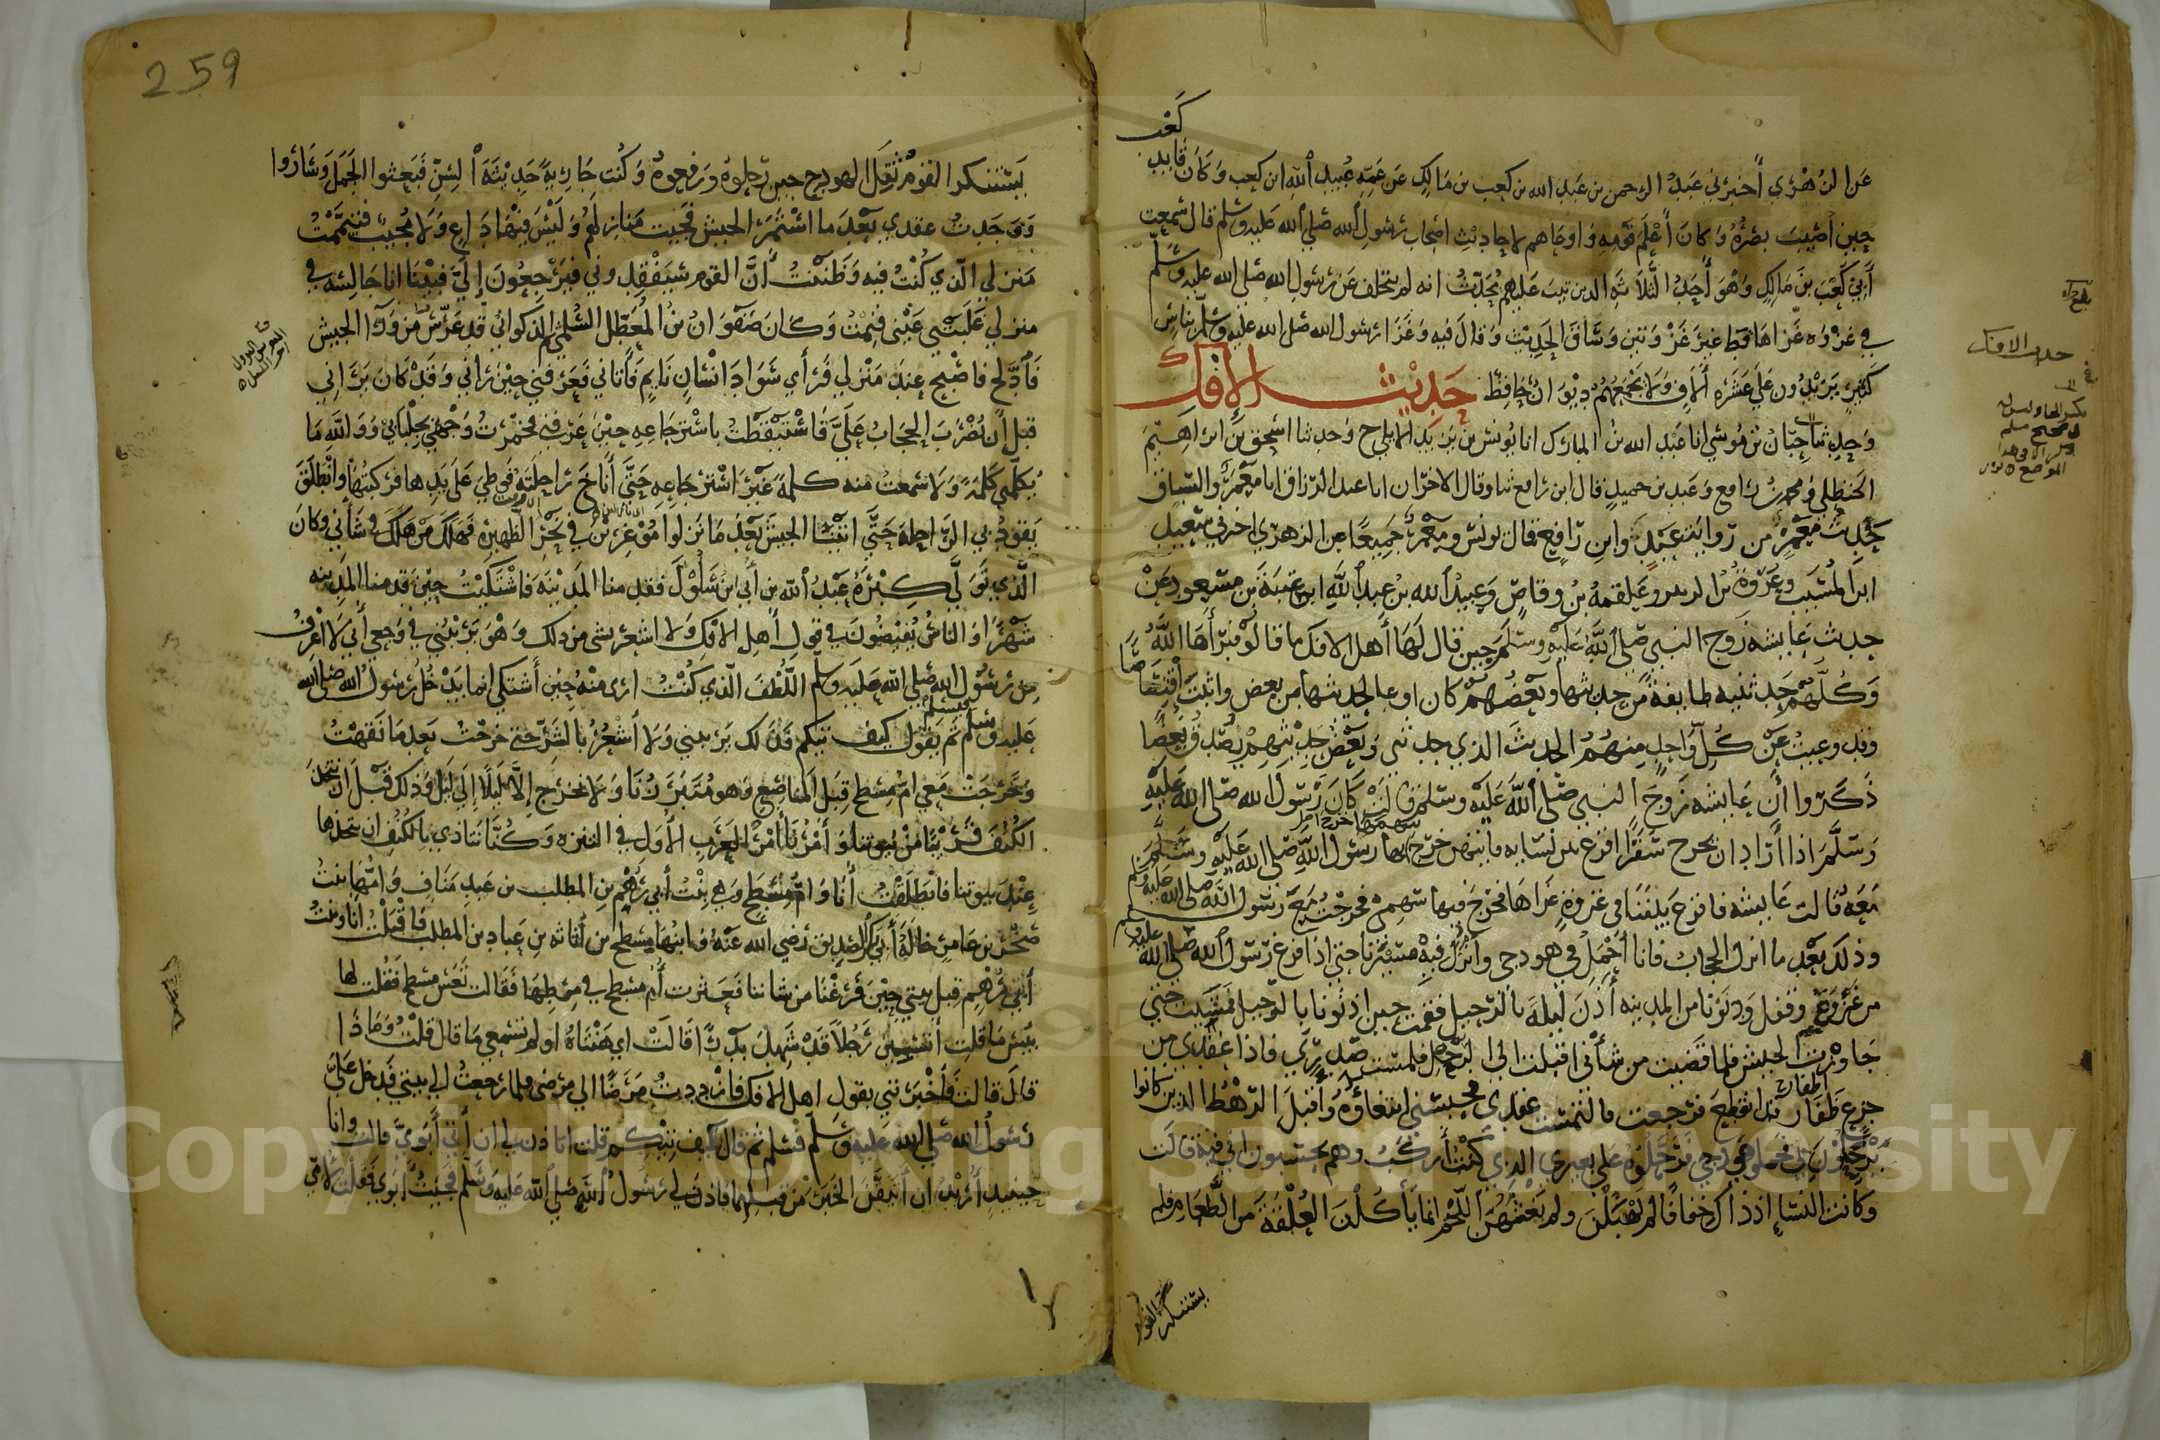 كعب
عن الزهري أخبرني عبد الرحمن بن عبد الله بن كعب بن مالك عن عمه عبيد الله ابن كعب وكان قايد
حين أصيب بصره وكان أعلم قومه واوعاهم لاحاديث اصحاب رسول الله صلى الله عليه وسلم قال سمعت
أبي كعب بن مالك وهو أحد الثلاثه الذين تيب عليهم يحدث انه لم يتخلف عن رسول الله صلى الله عليه وسلم
في غزوه غزاها قط غير غزوتين وساق الحديث وقال فيه وغزا رسول الله صلى الله عليه وسلم بناس
كثير يزيدون على عشره ألاف ولا يجمعهم ديوان حافظ حديث الافك
وحدثنا حبان بن موسى انا عبد الله بن المبارك انا يونس بن يزيد الايلي ح وحدثنا اسحق بن ابراهيم
الحنظلي ومحمد بن رافع وعبد بن حميد قال ابن رافع ثنا وقال الاخران انا عبد الرزاق انا معمر والسياق
حديث معمر من رواية عبد وابن رافع قال يونس ومعمر جميعا عن الزهري اخبرني سعيد
ابن المسيب وعروة بن الزبير وعلقمة بن وقاص وعبيد الله بن عبد الله ابن عتبة بن مسعود عن
حديث عايشه زوج النبي صلى الله عليه وسلم حين قال لها أهل الافك ما قالوا فبرأها الله
وكلهم حدثني طايفة من حديثها وبعضهم كان اوعا لحديثها من بعض واثبت اقتصاصا
وقد وعيت عن كل واحد منهم الحديث الذي حدثني وبعض حديثهم يصدق بعضا
ذكروا أن عايشه زوج النبي صلى الله عليه وسلم قالت كان رسول الله صلى الله عليه
وسلم اذا أراد ان يخرج سفرا اقرع بين نسايه فايتهن خرج سهمها خرج بها رسول الله صلى الله عليه وسلم
معه قالت عايشه فاقرع بيننا في غزوة غزاها فخرج فيها سهمي فخرجت مع رسول الله صلى الله عليه وسلم
وذلك بعد ما انزل الحجاب فانا أحمل في هودجي وأنزل فيه مسيرنا حتى اذا فرغ رسول الله صلى الله عليه وسلم
من غزوه وقفل ودنونا من المدينه أذن ليلة بالرحيل فقمت حين اذنوا بالرحيل فمشيت حتى
جاوزت الجيش فلما قضيت من شأني اقبلت الى الرحل فلمست صدري فاذا عقدي من
جزع ظفار اظفار قد انقطع فرجعت فالتمست عقدي فحبسني ابتغاؤه وأقبل الرهط الذين كانوا
يرحلون لي فحملوا هودجي فرحلوه على بعيري الذي كنت أركب وهم يحسبون اني فيه قالت
وكانت النساء اذ ذاك خفافا لم يهبلن ولم يغشهن اللحم انما يأكلن العلقة من الطعام فلم
يستنكر القوم
حديث الافك
259
يستنكروا القوم ثقل الهودج حين رحلوه ورفعوه وكنت جارية حديثة السن فبعثوا الجمل وساروا
ووجدت عقدي بعد ما استمر الجيش فجيت منازلهم وليس فيها داع ولا مجيب فتيممت
منزلي الذي كنت فيه وظننت أن القوم سيفقدوني فيرجعون إلي فبينا انا جالسه في
منزلي غلبتني عيني فنمت وكان صفوان بن المعطل السلمي ثم الذكواني قد عرس من ورا الجيش
فادلج فاصبح عند منزلي فرأي سواد انسان نايم فأتاني فعرفني حين رآني وقد كان يراني
قبل أن يضرب الحجاب علي فاستيقظت باسترجاعه حين عرفني فخمرت وجهي بجلبابي ووالله ما
يكلمني كلمة ولا سمعت منه كلمة غير استرجاعه حتى أناخ راحلته فوطي على يدها فركبتها وانطلق
يقود بي الراحلة حتى اتينا الجيش بعد ما نزلوا موغرين في نحر الظهيرة فهلك من هلك في شأني وكان
الذي تولى كبره عبد الله بن أبي ابن سلول فقدمنا المدينه فاشتكيت حين قدمنا المدينه
شهرا والناس يفيضون في قول أهل الافك ولا اشعر بشي من ذلك وهو يريبني في وجعي أني لا اعرف
من رسول الله صلى الله عليه وسلم اللطف الذي كنت ارى منه حين أشتكي انما يدخل رسول الله صلى الله
عليه وسلم فيسلم ثم يقول كيف تيكم فذلك يريبني ولا أشعر بالشر حتى خرجت بعد ما نقهت
وخرجت معي ام مسطح قبل المناصع وهو متبرزنا ولا نخرج إلا ليلا إلى ليل وذلك قبل ان نتخذ
الكنف قريبا من بيوتنا وأمرنا أمر العرب الأول في التنزه وكنا نتاذى بالكنف ان نتخذها
عند بيوتنا فانطلقت أنا وام مسطح وهي بنت أبي رهم بن المطلب بن عبد مناف وامها بنت
صخر بن عامر خالة أبي بكر الصديق رضي الله عنه وابنها مسطح بن أثاثه بن عباد بن المطلب فاقبلت انا وبنت
أبي رهم قبل بيتي حين فرغنا من شاننا فعثرت أم مسطح في مرطها فقالت تعس مسطح فقلت لها
بيس ما قلت أتسبين رجلا قد شهد بدرا قالت اي هنتاه اولم تسمعي ما قال قلت وماذا
قال قالت فأخبرتني بقول اهل الافك فازددت مرضا الي مرضي فلما رجعت الى بيتي فدخل علي
رسول الله صلى الله عليه وسلم فسلم ثم قال كيف تيكم قلت اتاذن لي ان أتي أبوي قالت وانا
حينيذ أريد ان أتيقن الخبر من قبلهما فاذن لي رسول الله صلى الله عليه وسلم فجيت أبوي فقلت لامي
Copyright © King Saud University